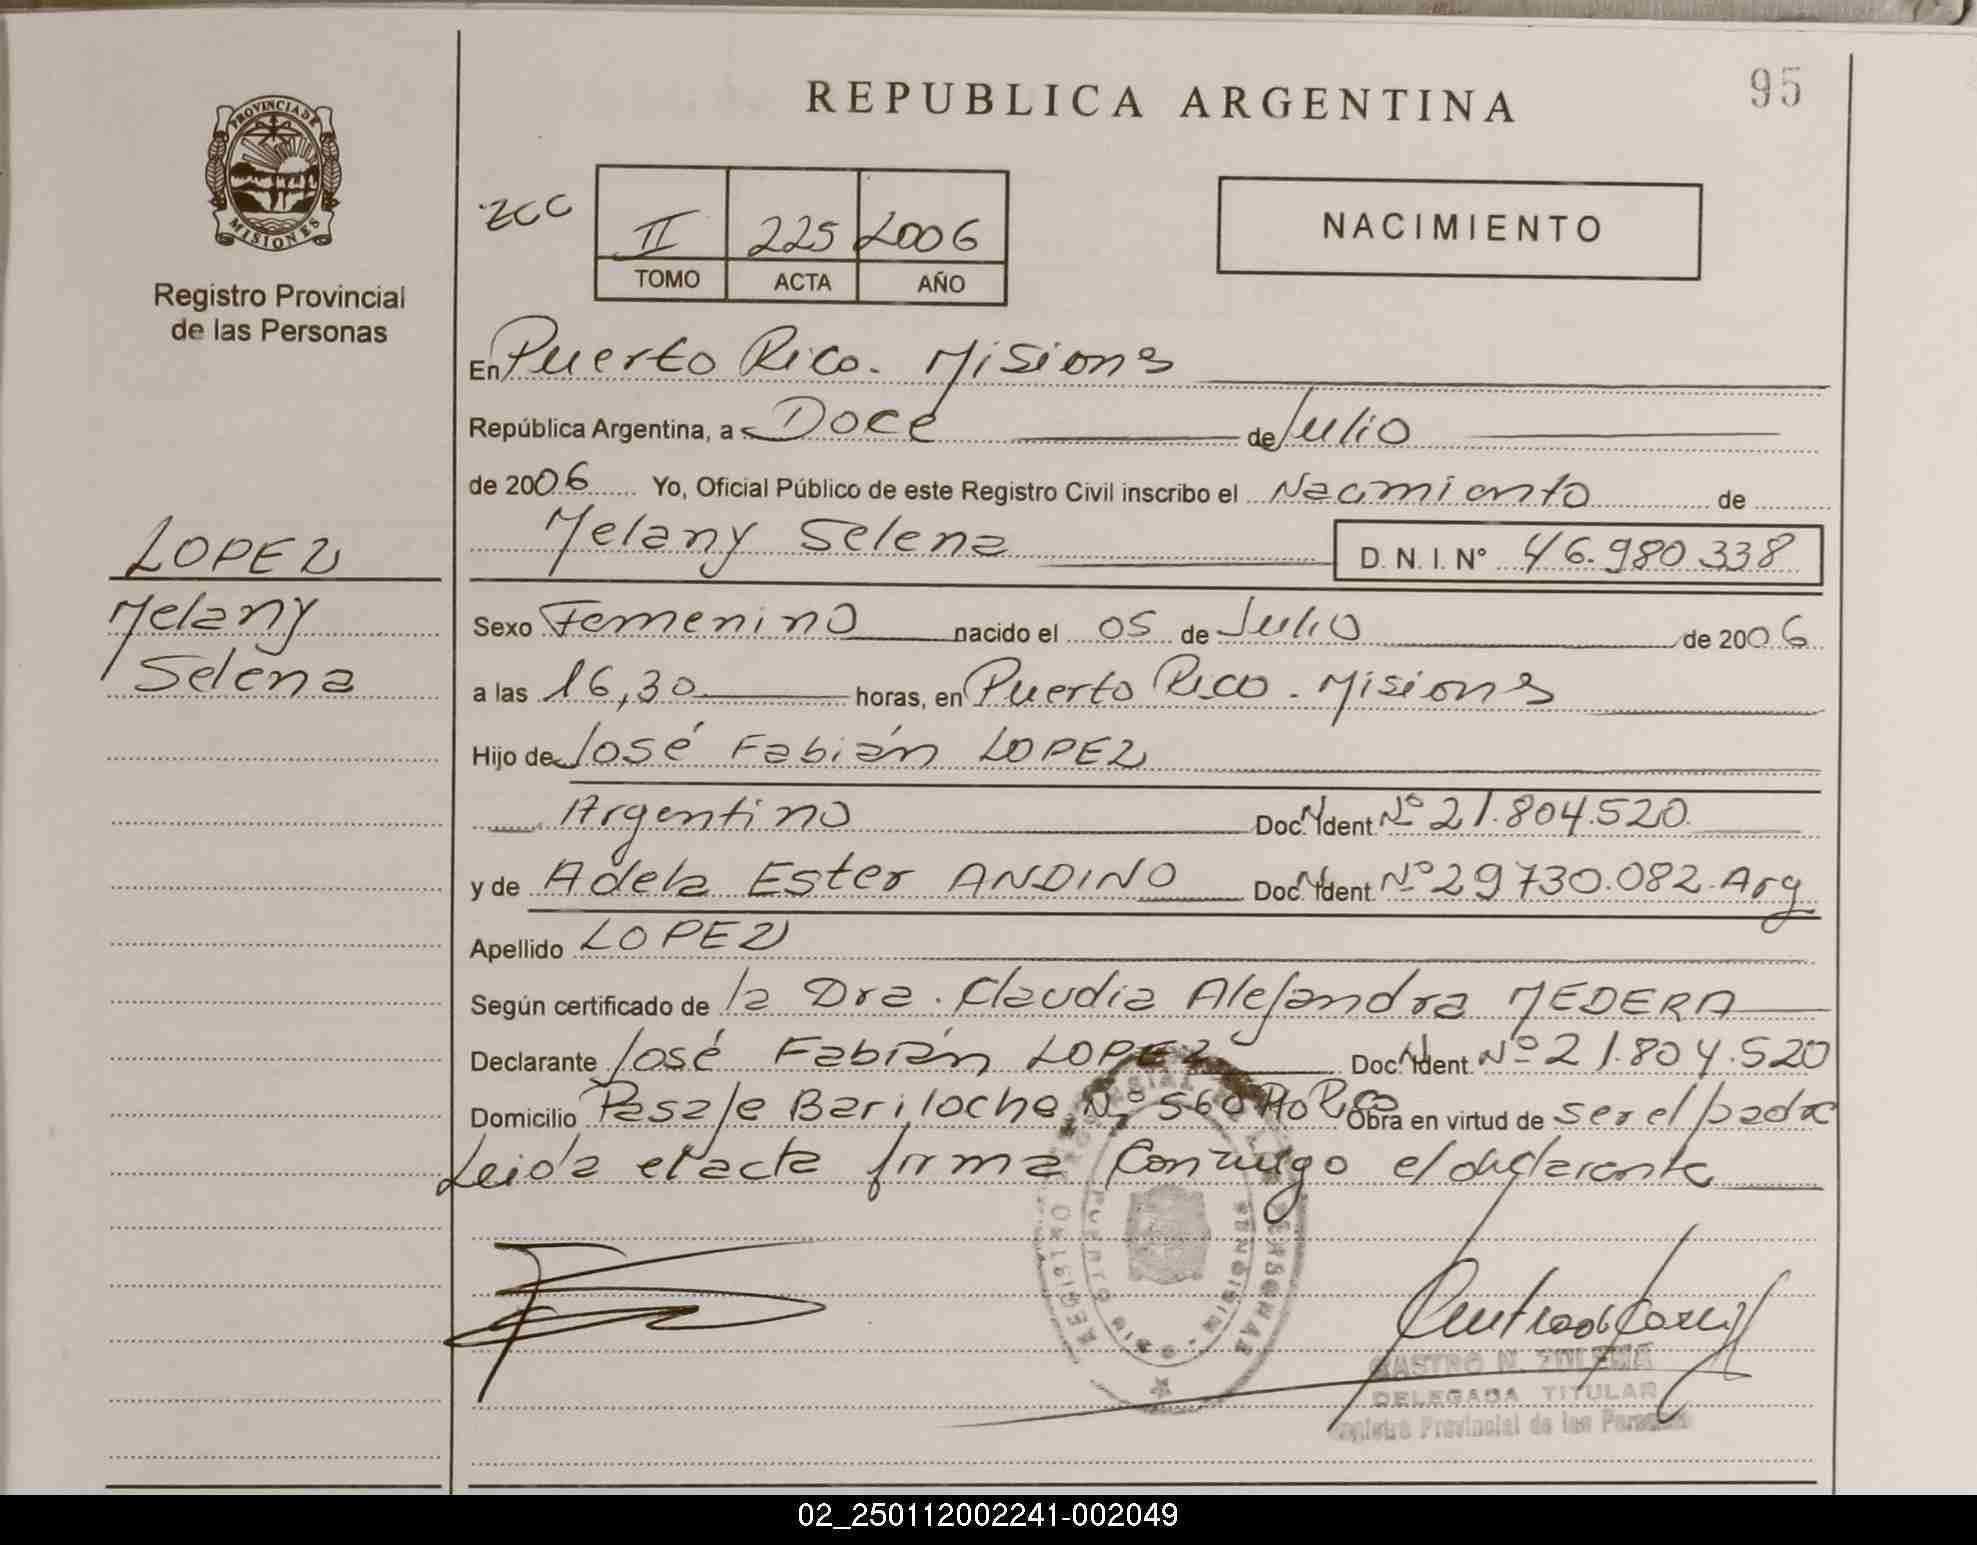 REPUBLICA ARGENTINA
95
PROVINCIA DE
MISIONES
Registro Provincial
de las Personas
zcc
II 225 2006
TOMO ACTA AÑO
NACIMIENTO
En Puerto Rico. Misiones
República Argentina, a Doce de Julio
de 2006 Yo, Oficial Público de este Registro Civil inscribo el Nacimiento de
Melany Selena D. N. I. Nº 46.980.338
LOPEZ
Melany
Selena
Sexo Femenino nacido el 05 de Julio de 2006
a las 16,30 horas, en Puerto Rico. Misiones
Hijo de José Fabián LOPEZ
Argentino Doc. N Ident. Nº 21.804.520
y de Adela Ester ANDINO Doc. N Ident. Nº 29730.082. Arg
Apellido LOPEZ
Según certificado de la Dra. Claudia Alejandra MEDERA
Declarante José Fabián LOPEZ Doc. N Ident. Nº 21.804.520
Domicilio Pasaje Bariloche Nº 560 Pto Rico Obra en virtud de ser el padre
Leida el acta firma conmigo el declarante
CASTRO N. ZULEMA
DELEGADA TITULAR
Registro Provincial de las Personas
02_250112002241-002049